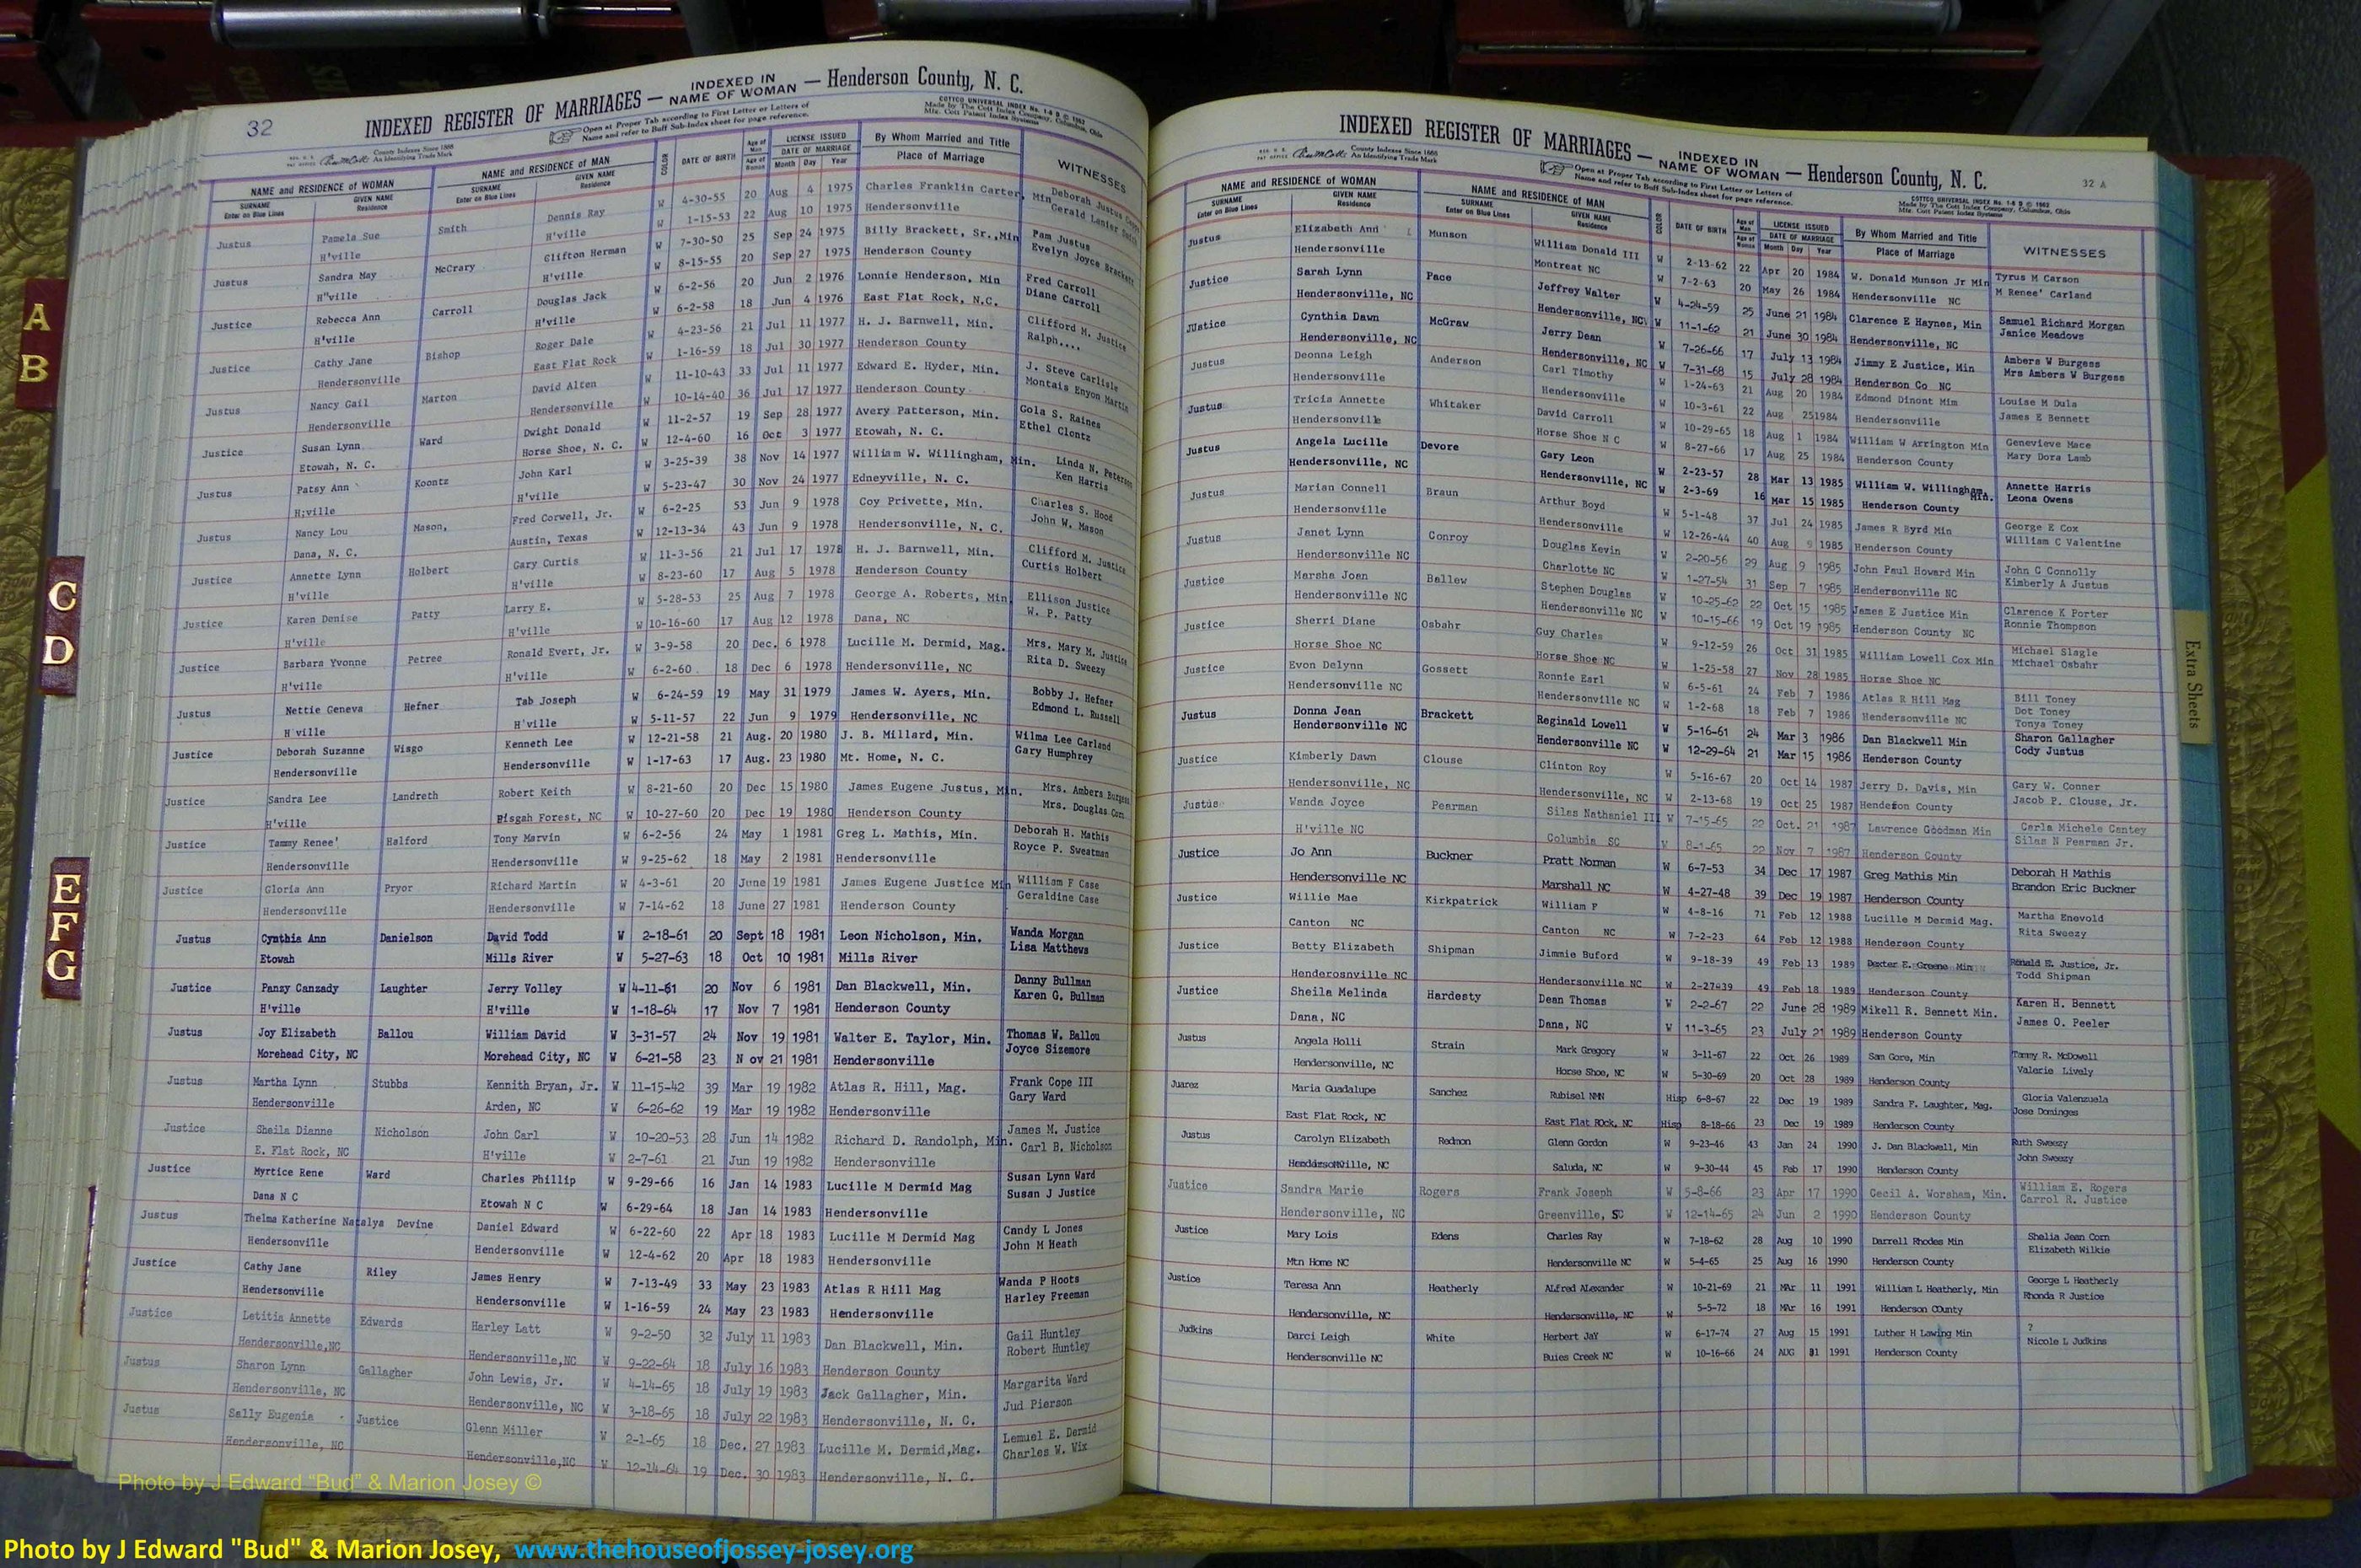 32
INDEXED REGISTER OF MARRIAGES — INDEXED IN NAME OF WOMAN — Henderson County, N. C.
Open at Proper Tab according to First Letter or Letters of
Name and refer to Buff Sub-Index sheet for page reference.
COTTCO UNIVERSAL INDEX No. 1-6 B © 1962
Made by The Cott Index Company, Columbus, Ohio
Mfg. Cott Patent Index Systems
County Indexes Since 1888
An Identifying Trade Mark
NAME and RESIDENCE of WOMAN NAME and RESIDENCE of MAN COLOR DATE OF BIRTH Age of Man LICENSE ISSUED By Whom Married and Title WITNESSES
SURNAME GIVEN NAME SURNAME GIVEN NAME Age of Woman DATE OF MARRIAGE Place of Marriage
Enter on Blue Lines Residence Enter on Blue Lines Residence Month Day Year
Justus Pamela Sue Smith Dennis Ray W 4-30-55 20 Aug 4 1975 Charles Franklin Carter, Min Deborah Justus
H'ville H'ville W 1-15-53 22 Aug 10 1975 Hendersonville Gerald Lanier Smith
Justus Sandra May McCrary Clifton Herman W 7-30-50 25 Sep 24 1975 Billy Brackett, Sr.,Min Pam Justus
H"ville H'ville W 8-15-55 20 Sep 27 1975 Henderson County Evelyn Joyce Brackett
Justice Rebecca Ann Carroll Douglas Jack W 6-2-56 20 Jun 2 1976 Lonnie Henderson, Min Fred Carroll
H'ville H'ville W 6-2-58 18 Jun 4 1976 East Flat Rock, N.C. Diane Carroll
Justice Cathy Jane Bishop Roger Dale W 4-23-56 21 Jul 11 1977 H. J. Barnwell, Min. Clifford M. Justice
Hendersonville East Flat Rock W 1-16-59 18 Jul 30 1977 Henderson County Ralph....
Justus Nancy Gail Marton David Allen W 11-10-43 33 Jul 11 1977 Edward E. Hyder, Min. J. Steve Carlisle
Hendersonville Hendersonville W 10-14-40 36 Jul 17 1977 Henderson County Montais Enyon Martin
Justice Susan Lynn Ward Dwight Donald W 11-2-57 19 Sep 28 1977 Avery Patterson, Min. Gola S. Raines
Etowah, N. C. Horse Shoe, N. C. W 12-4-60 16 Oct 3 1977 Etowah, N. C. Ethel Clontz
Justus Patsy Ann Koontz John Karl W 3-25-39 38 Nov 14 1977 William W. Willingham, Min. Linda N. Peterson
H;ville H'ville W 5-23-47 30 Nov 24 1977 Edneyville, N. C. Ken Harris
Justus Nancy Lou Mason, Fred Corwell, Jr. W 6-2-25 53 Jun 9 1978 Coy Privette, Min. Charles S. Hood
Dana, N. C. Austin, Texas W 12-13-34 43 Jun 9 1978 Hendersonville, N. C. John W. Mason
Justice Annette Lynn Holbert Gary Curtis W 11-3-56 21 Jul 17 1978 H. J. Barnwell, Min. Clifford M. Justice
H'ville H'ville W 8-23-60 17 Aug 5 1978 Henderson County Curtis Holbert
Justice Karen Denise Patty Larry E. W 5-28-53 25 Aug 7 1978 George A. Roberts, Min. Ellison Justice
H'ville H'ville W 10-16-60 17 Aug 12 1978 Dana, NC W. P. Patty
Justice Barbara Yvonne Petree Ronald Evert, Jr. W 3-9-58 20 Dec. 6 1978 Lucille M. Dermid, Mag. Mrs. Mary M. Justice
H'ville H'ville W 6-2-60 18 Dec 6 1978 Hendersonville, NC Rita D. Sweezy
Justus Nettie Geneva Hefner Tab Joseph W 6-24-59 19 May 31 1979 James W. Ayers, Min. Bobby J. Hefner
H ville H'ville W 5-11-57 22 Jun 9 1979 Hendersonville, NC Edmond L. Russell
Justice Deborah Suzanne Wisgo Kenneth Lee W 12-21-58 21 Aug. 20 1980 J. B. Millard, Min. Wilma Lee Carland
Hendersonville Hendersonville W 1-17-63 17 Aug. 23 1980 Mt. Home, N. C. Gary Humphrey
Justice Sandra Lee Landreth Robert Keith W 8-21-60 20 Dec 15 1980 James Eugene Justus, Min. Mrs. Ambers Burgess
H'ville Pisgah Forest, NC W 10-27-60 20 Dec 19 1980 Henderson County Mrs. Douglas Corn
Justice Tammy Renee' Halford Tony Marvin W 6-2-56 24 May 1 1981 Greg L. Mathis, Min. Deborah H. Mathis
Hendersonville Hendersonville W 9-25-62 18 May 2 1981 Hendersonville Royce P. Sweatman
Justice Gloria Ann Pryor Richard Martin W 4-3-61 20 June 19 1981 James Eugene Justice Min William F Case
Hendersonville Hendersonville W 7-14-62 18 June 27 1981 Henderson County Geraldine Case
Justus Cynthia Ann Danielson David Todd W 2-18-61 20 Sept 18 1981 Leon Nicholson, Min. Wanda Morgan
Etowah Mills River W 5-27-63 18 Oct 10 1981 Mills River Lisa Matthews
Justice Panzy Canzady Laughter Jerry Volley W 4-11-61 20 Nov 6 1981 Dan Blackwell, Min. Danny Bullman
H'ville H'ville W 1-18-64 17 Nov 7 1981 Henderson County Karen G. Bullman
Justus Joy Elizabeth Ballou William David W 3-31-57 24 Nov 19 1981 Walter E. Taylor, Min. Thomas W. Ballou
Morehead City, NC Morehead City, NC W 6-21-58 23 N ov 21 1981 Hendersonville Joyce Sizemore
Justus Martha Lynn Stubbs Kennith Bryan, Jr. W 11-15-42 39 Mar 19 1982 Atlas R. Hill, Mag. Frank Cope III
Hendersonville Arden, NC W 6-26-62 19 Mar 19 1982 Hendersonville Gary Ward
Justice Sheila Dianne Nicholson John Carl W 10-20-53 28 Jun 14 1982 Richard D. Randolph, Min. James M. Justice
E. Flat Rock, NC H'ville W 2-7-61 21 Jun 19 1982 Hendersonville Carl B. Nicholson
Justice Myrtice Rene Ward Charles Phillip W 9-29-66 16 Jan 14 1983 Lucille M Dermid Mag Susan Lynn Ward
Dana N C Etowah N C W 6-29-64 18 Jan 14 1983 Hendersonville Susan J Justice
Justus Thelma Katherine Natalya Devine Daniel Edward W 6-22-60 22 Apr 18 1983 Lucille M Dermid Mag Candy L Jones
Hendersonville Hendersonville W 12-4-62 20 Apr 18 1983 Hendersonville John M Heath
Justice Cathy Jane Riley James Henry W 7-13-49 33 May 23 1983 Atlas R Hill Mag Wanda P Hoots
Hendersonville Hendersonville W 1-16-59 24 May 23 1983 Hendersonville Harley Freeman
Justice Letitia Annette Edwards Harley Latt W 9-2-50 32 July 11 1983 Dan Blackwell, Min. Gail Huntley
Hendersonville,NC Hendersonville,NC W 9-22-64 18 July 16 1983 Henderson County Robert Huntley
Justus Sharon Lynn Gallagher John Lewis, Jr. W 4-14-65 18 July 19 1983 Jack Gallagher, Min. Margarita Ward
Hendersonville, NC Hendersonville, NC W 3-18-65 18 July 22 1983 Hendersonville, N. C. Jud Pierson
Justus Sally Eugenia Justice Glenn Miller W 2-1-65 18 Dec. 27 1983 Lucille M. Dermid,Mag. Lemuel E. Dermid
Hendersonville, NC Hendersonville,NC W 12-14-64 19 Dec. 30 1983 Hendersonville, N. C. Charles W. Wix
INDEXED REGISTER OF MARRIAGES — INDEXED IN NAME OF WOMAN — Henderson County, N. C.
32 A
Open at Proper Tab according to First Letter or Letters of
Name and refer to Buff Sub-Index sheet for page reference.
COTTCO UNIVERSAL INDEX No. 1-6 B © 1962
Made by The Cott Index Company, Columbus, Ohio
Mfg. Cott Patent Index Systems
County Indexes Since 1888
An Identifying Trade Mark
NAME and RESIDENCE of WOMAN NAME and RESIDENCE of MAN COLOR DATE OF BIRTH Age of Man LICENSE ISSUED By Whom Married and Title WITNESSES
SURNAME GIVEN NAME SURNAME GIVEN NAME Age of Woman DATE OF MARRIAGE Place of Marriage
Enter on Blue Lines Residence Enter on Blue Lines Residence Month Day Year
Justus Elizabeth And Munson William Donald III W 2-13-62 22 Apr 20 1984 W. Donald Munson Jr Min Tyrus M Carson
Hendersonville Montreat NC W 7-2-63 20 May 26 1984 Hendersonville NC M Renee' Carland
Justice Sarah Lynn Pace Jeffrey Walter W 4-24-59 25 June 21 1984 Clarence E Haynes, Min Samuel Richard Morgan
Hendersonville, NC Hendersonville, NC W 11-1-62 21 June 30 1984 Hendersonville, NC Janice Meadows
JUstice Cynthia Dawn McGraw Jerry Dean W 7-26-66 17 July 13 1984 Jimmy E Justice, Min Ambers W Burgess
Hendersonville, NC Hendersonville, NC W 7-31-68 15 July 28 1984 Henderson Co NC Mrs Ambers W Burgess
Justus Deonna Leigh Anderson Carl Timothy W 1-24-63 21 Aug 20 1984 Edmond Dinont Mim Louise M Dula
Hendersonville Hendersonville W 10-3-61 22 Aug 25 1984 Hendersonville James E Bennett
Justus Tricia Annette Whitaker David Carroll W 10-29-65 18 Aug 1 1984 William W Arrington Min Genevieve Mace
Hendersonville Horse Shoe N C W 8-27-66 17 Aug 25 1984 Henderson County Mary Dora Lamb
Justus Angela Lucille Devore Gary Leon W 2-23-57 28 Mar 13 1985 William W. Willingham, Min. Annette Harris
Hendersonville, NC Hendersonville, NC W 2-3-69 16 Mar 15 1985 Henderson County Leona Owens
Justus Marian Connell Braun Arthur Boyd W 5-1-48 37 Jul 24 1985 James R Byrd Min George E Cox
Hendersonville Hendersonville W 12-26-44 40 Aug 9 1985 Henderson County William C Valentine
Justus Janet Lynn Conroy Douglas Kevin W 2-20-56 29 Aug 9 1985 John Paul Howard Min John C Connolly
Hendersonville NC Charlotte NC W 1-27-54 31 Sep 7 1985 Hendersonville NC Kimberly A Justus
Justice Marsha Joan Ballew Stephen Douglas W 10-25-62 22 Oct 15 1985 James E Justice Min Clarence K Porter
Hendersonville NC Hendersonville NC W 10-15-66 19 Oct 19 1985 Henderson County NC Ronnie Thompson
Justice Sherri Diane Osbahr Guy Charles W 9-12-59 26 Oct 31 1985 William Lowell Cox Min Michael Slagle
Horse Shoe NC Horse Shoe NC W 1-25-58 27 Nov 28 1985 Horse Shoe NC Michael Osbahr
Justice Evon Delynn Gossett Ronnie Earl W 6-5-61 24 Feb 7 1986 Atlas R Hill Mag Bill Toney
Hendersonville NC Hendersonville NC W 1-2-68 18 Feb 7 1986 Hendersonville NC Dot Toney
Tonya Toney
Justus Donna Jean Brackett Reginald Lowell W 5-16-61 24 Mar 3 1986 Dan Blackwell Min Sharon Gallagher
Hendersonville NC Hendersonville NC W 12-29-64 21 Mar 15 1986 Henderson County Cody Justus
Justice Kimberly Dawn Clouse Clinton Roy W 5-16-67 20 Oct 14 1987 Jerry D. Davis, Min Gary W. Conner
Hendersonville, NC Hendersonville, NC W 2-13-68 19 Oct 25 1987 Henderson County Jacob P. Clouse, Jr.
Justuse Wanda Joyce Pearman Silas Nathaniel III W 7-15-65 22 Oct. 21 1987 Lawrence Goodman Min Carla Michele Cantey
H'ville NC Columbia SC W 8-1-65 22 Nov 7 1987 Henderson County Silas N Pearman Jr.
Justice Jo Ann Buckner Pratt Norman W 6-7-53 34 Dec 17 1987 Greg Mathis Min Deborah H Mathis
Hendersonville NC Marshall NC W 4-27-48 39 Dec 19 1987 Henderson County Brandon Eric Buckner
Justice Willie Mae Kirkpatrick William F W 4-8-16 71 Feb 12 1988 Lucille M Dermid Mag. Martha Enevold
Canton NC Canton NC W 7-2-23 64 Feb 12 1988 Henderson County Rita Sweezy
Justice Betty Elizabeth Shipman Jimmie Buford W 9-18-39 49 Feb 13 1989 Dexter E. Greene Min Ronald E. Justice, Jr.
Henderosnville NC Hendersonville NC W 2-27-39 49 Feb 18 1989 Henderson County Todd Shipman
Justice Sheila Melinda Hardesty Dean Thomas W 2-2-67 22 June 28 1989 Mikell R. Bennett Min. Karen H. Bennett
Dana, NC Dana, NC W 11-3-65 23 July 21 1989 Henderson County James O. Peeler
Justus Angela Holli Strain Mark Gregory W 3-11-67 22 Oct 26 1989 Sam Gore, Min Tammy R. McDowell
Hendersonville, NC Horse Shoe, NC W 5-30-69 20 Oct 28 1989 Henderson County Valerie Lively
Juarez Maria Guadalupe Sanchez Rubisel NMN Hisp 6-8-67 22 Dec 19 1989 Sandra F. Laughter, Mag. Gloria Valenzuela
East Flat Rock, NC East Flat ROck, NC Hisp 8-18-66 23 Dec 19 1989 Henderson County Jose Dominges
Justus Carolyn Elizabeth Redmon Glenn Gordon W 9-23-46 43 Jan 24 1990 J. Dan Blackwell, Min Ruth Sweezy
Hendersonville, NC Saluda, NC W 9-30-44 45 Feb 17 1990 Henderson County John Sweezy
Justice Sandra Marie Rogers Frank Joseph W 5-8-66 23 Apr 17 1990 Cecil A. Worsham, Min. William E. Rogers
Hendersonville, NC Greenville, SC W 12-14-65 24 Jun 2 1990 Henderson County Carrol R. Justice
Justice Mary Lois Edens Charles Ray W 7-18-62 28 Aug 10 1990 Darrell Rhodes Min Shelia Jean Corn
Mtn Home NC Hendersonville NC W 5-4-65 25 Aug 16 1990 Henderson County Elizabeth Wilkie
Justice Teresa Ann Heatherly ALfred Alexander W 10-21-69 21 MAr 11 1991 William L Heatherly, Min George L Heatherly
Hendersonville, NC Hendersonville, NC W 5-5-72 18 MAr 16 1991 Henderson COunty Rhonda R Justice
Judkins Darci Leigh White Herbert JaY W 6-17-74 27 Aug 15 1991 Luther H Lawing Min ?
Hendersonville NC Buies Creek NC W 10-16-66 24 AUG 31 1991 Henderson County Nicole L Judkins
A
B
C
D
E
F
G
Extra Sheets
Photo by J Edward “Bud” & Marion Josey ©
Photo by J Edward "Bud" & Marion Josey, www.thehouseofjossey-josey.org